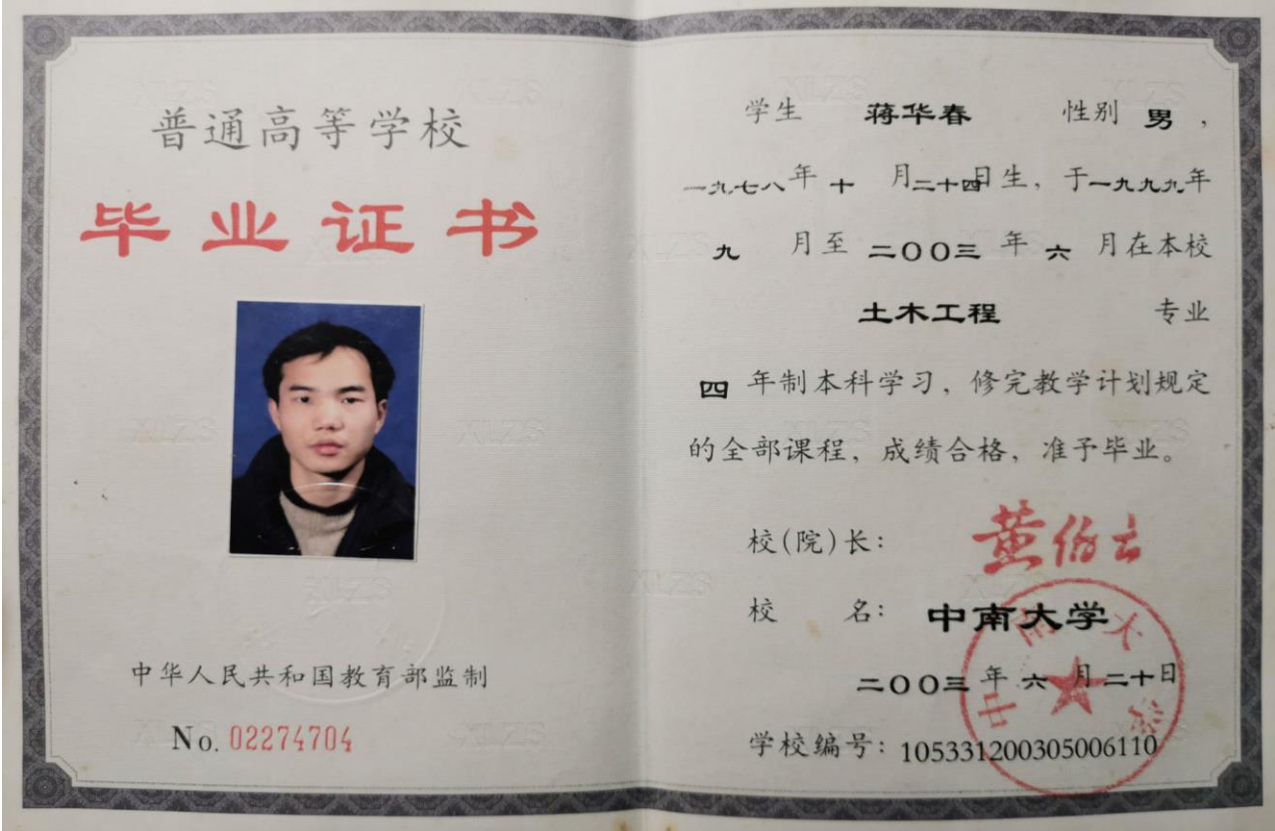 普通高等学校
毕业证书
中华人民共和国教育部监制
No. 02274704
学生 蒋华春 性别 男，
一九七八年十月二十四日生，于一九九九年
九月至二〇〇三年六月在本校
土木工程 专业
四年制本科学习，修完教学计划规定
的全部课程，成绩合格，准予毕业。
校(院)长： 黄伯云
校名： 中南大学
二〇〇三年六月二十日
学校编号：105331200305006110
中南大学
XLZS
XLZS
XLZS
XLZS
XLZS
XLZS
XLZS